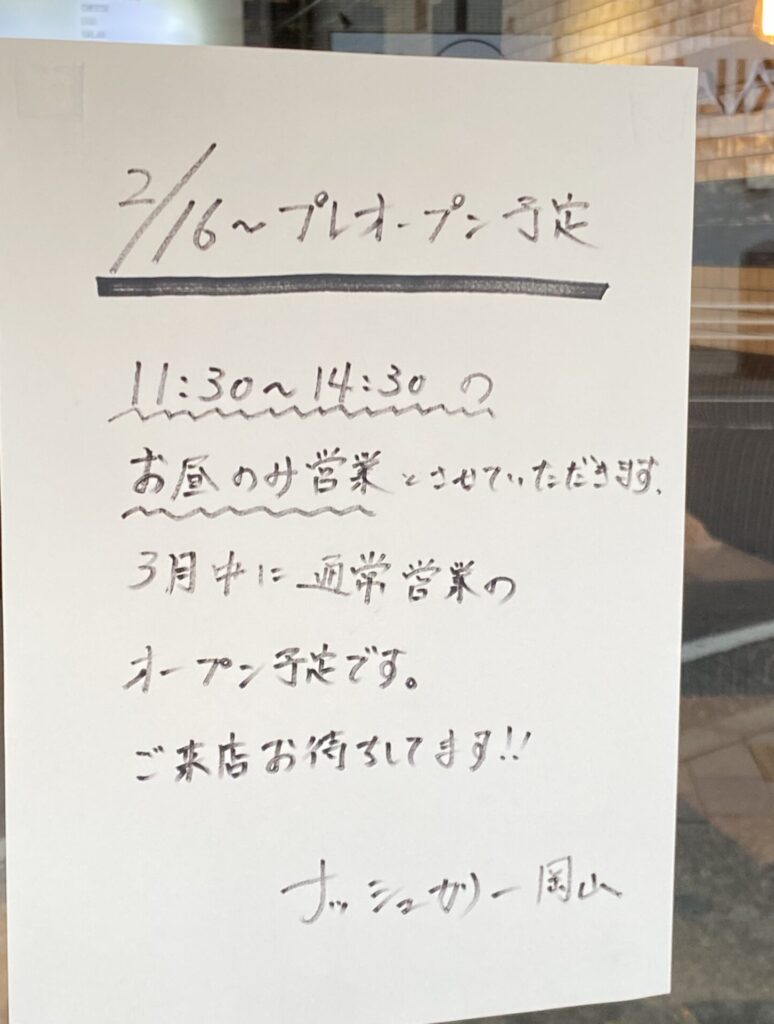 2/16〜プレオープン予定
11:30〜14:30の
お昼のみ営業とさせていただきます。
3月中に通常営業の
オープン予定です。
ご来店お待ちしてます!!
ナッシュカリー岡山